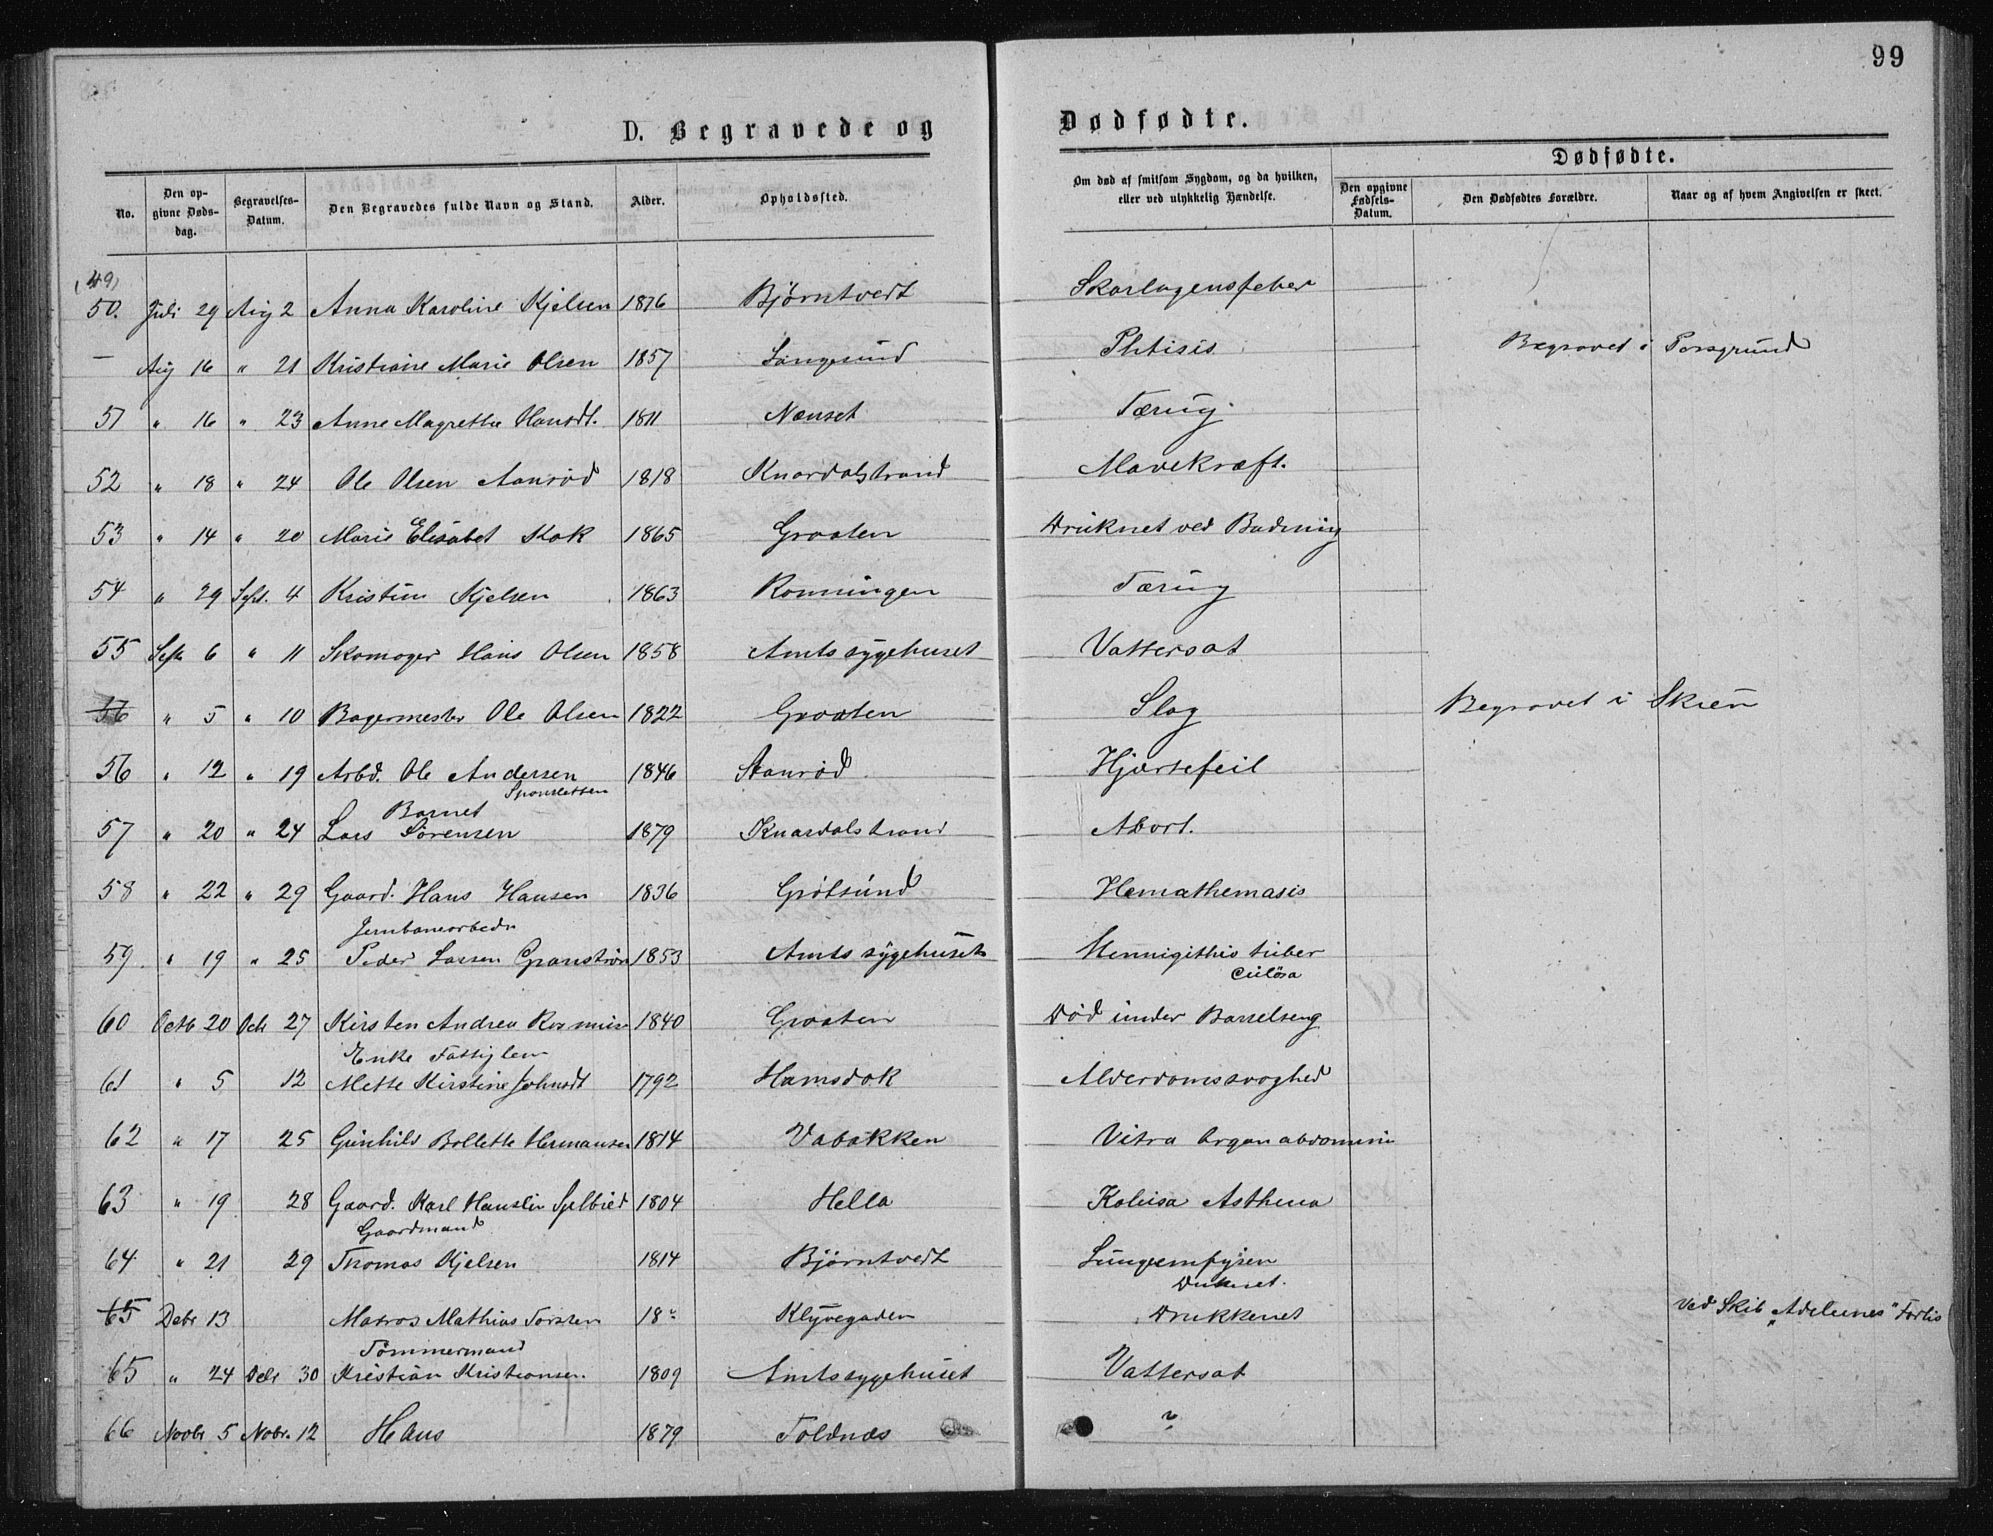 99
D. Begravede og Dødfødte.
No. Den opgivne Dødsdag. Begravelses-Datum. Den Begravedes fulde Navn og Stand. Alder. Opholdssted. Om død af smitsom Sygdom, og da hvilken, eller ved ulykkelig Hændelse. Dødfødte. Den opgivne Fødsels-Datum. Den Dødfødtes Forældre. Naar og af hvem Angivelsen er skeet.
(49)
50. Juli 29 Aug 2 Anna Karoline Kjelsen 1876 Bjørntvedt Skarlagensfeber
— Aug 16 " 21 Kristiane Marie Olsen 1857 Langesund Phtisis Begravet i Porsgrund
51 " 16 " 23 Anne Magrethe Hansdt. 1811 Nenset Tæring
52 " 18 " 24 Ole Olsen Aanrød 1818 Knardalstrand Mavekræft.
53 " 14 " 20 Marie Elisabet Kok 1865 Graaten Druknet ved Badning
54 " 29 Sept. 4 Kristine Kjelsen 1863 Rønningen Tæring
55 Sept 6 " 11 Skomager Hans Olsen 1858 Amtssygehuset Vattersot
56 " 5 " 10 Bagermester Ole Olsen 1822 Graaten Slag Begravet i Skien
56 " 12 " 19 Arbd. Ole Andersen 1846 Aanrød Hjærtefeil
Sponsletten
Barnet
57 " 20 " 24 Lars Sørensen 1879 Knardalstrand Abort.
58 " 22 " 29 Gaard. Hans Hansen 1836 Grøtsund Hemathemasis
Jernbanearbedr
59. " 19 " 25 Peder Larsen Granstrøm 1853 Amtssygehuset Mennigithis tuber
culøsa
60 Octb 20 Octr 27 Kirsten Andrea 1840 Graaten Død under Barselseng
Enke Fattiglem
61 " 5 12 Mette Kirstine Johnsdt 1792 Hamsdok Alderdomssvaghed
62 " 17 25 Gunhild Bollette Hermansen 1814 Vabakken Vitra Organ abdomini
63 " 19 28 Gaard. Karl 1804 Hella Asthma
Gaardmand
64 " 21 29 Thomas Kjelsen 1814 Bjørntvedt Lungemfysen
Druknet.
65 Debr 13 Matros Mathias Torsten 18" Klyvegaden Drukkenet Ved Skib "Adelunes" Forlis
Tømmermand
65 " 24 Octr 30 Kristian Kristiansen. 1809 Amtssygehuset Vattersot
66 Novbr 5 Nobr. 12 Hans 1879 Toldnæs ?